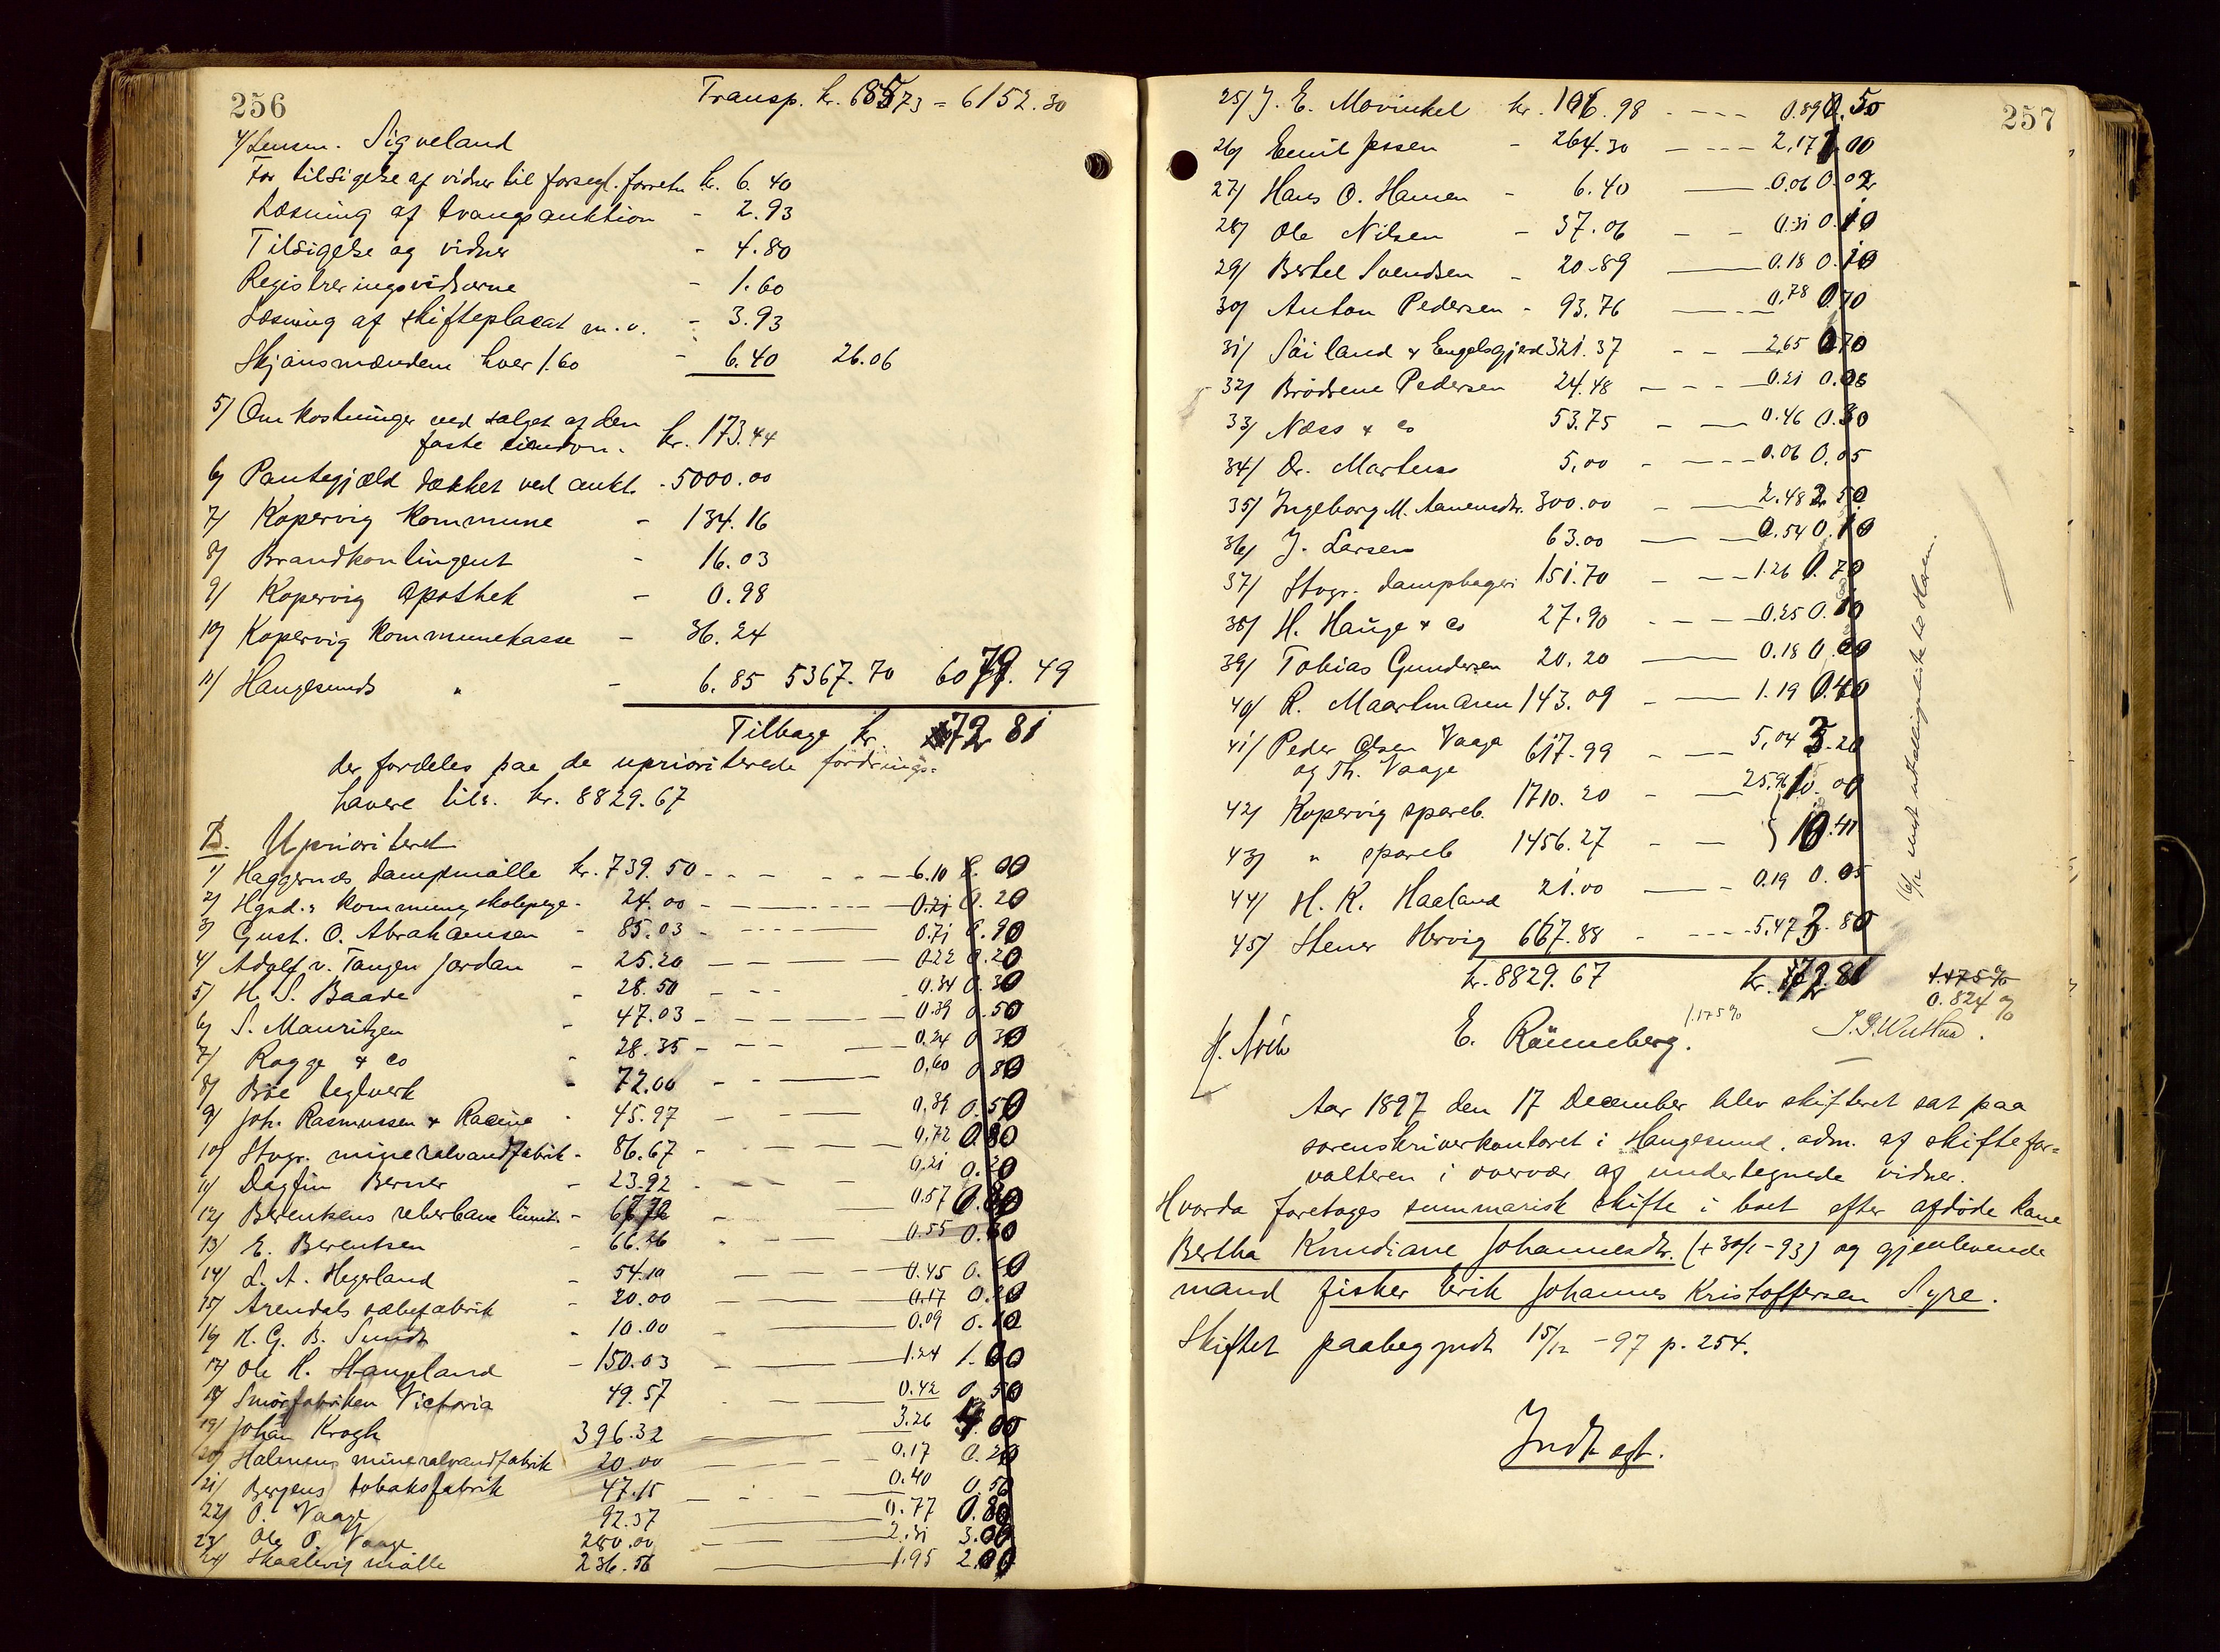 256
Transp. kr. 685.73 = 6152.30
4/ Lensm. Sigveland
For tilsigelse af vidner til forsegl. forretn. kr. 6.40
Læsning af tvangsauktion - 2.93
Tilsigelse og vidner - 4.80
Registreringsvidnerne - 1.60
Læsning af skifteplacat m.v. - 3.93
Skjønsmændene hver 1.60 - 6.40 26.06
5/ Omkostninger ved salget af den
faste eiendom. kr. 173.44
6/ Pantegjæld dækket ved aukt. - 5000.00
7/ Kopervig kommune - 134.16
8/ Brandkontingent - 16.03
9/ Kopervig apothek - 0.98
10/ Kopervig kommunekasse - 36.24
11/ Haugesunds " - 6.85 5367.70 6079.49
Tilbage kr. 72 81
der fordeles paa de uprioriterede fordrings-
havere tils. kr. 8829.67
B. Uprioriteret
1/ Haggernæs dampmølle kr. 739.50 - 6.10
2/ Hgsd.s kommunes skolepenge - 24.00 - 0.21 0.20
3/ Gust. O. Abrahamsen - 85.03 - 0.71 0.90
4/ Adolf v. Tangen Jordan - 25.20 - 0.22 0.20
5/ H. S. Baade - 28.50 - 0.34 0.30
6/ S. Mauritzen - 47.03 - 0.39 0.50
7/ Rogge & Co - 28.35 - 0.24 0.30
8/ Bøe teglverk - 72.00 - 0.60 0.80
9/ Joh. Rasmussen & Racine - 45.97 - 0.39 0.50
10/ Stvgr. mineralvandfabrik - 86.67 - 0.72 0.80
11/ Dagfin Berner - 23.92 - 0.21 0.20
12/ Berentsens reberbane - 0.57
13/ E. Berentsen - 66.26 - 0.55 0.60
14/ L. A. Hegerland - 54.10 - 0.45
15/ Arendals sæbefabrik - 20.00 - 0.17 0.20
16/ H. G. B. Sundt - 10.00 - 0.09 0.10
17/ Ole K. Haugeland - 150.03 - 1.24 1.60
18/ Smørfabriken Victoria 49.57 - 0.42 0.50
19/ Johan Krogh 396.32 - 3.26
20/ Holmens mineralvandfabrik 20.00 - 0.17 0.20
21/ Bergens tobaksfabrik 47.15 - 0.40 0.50
22/ O. Vaage 92.37 - 0.77 0.80
23/ Ole O. Vaage 280.00 - 2.31 3.00
24/ Skaalevig mølle 236.56 - 1.95 2.00
257
25/ J. E. Mowinkel kr. 106.98 - 0.89 0.50
26/ Emil Jessen - 264.30 - 2.17
27/ Hans O. Hansen - 6.40 - 0.06 0.02
28/ Ole Nilsen - 37.06 - 0.31 0.10
29/ Bertel Svendsen - 20.89 - 0.18 0.10
30/ Anton Pedersen - 93.76 - 0.78 0.70
31/ Söiland & Engelsgjerd 321.37 - 2.65
32/ Brødrene Pedersen 24.48 - 0.21 0.06
33/ Næss & Co 53.75 - 0.46 0.30
34/ Dr. Martens 5.00 - 0.06 0.05
35/ Ingeborg M. Aanensdtr. 300.00 - 2.48 2.50
36/ J. Larsen 63.00 - 0.54 0.10
37/ Stvgr. dampbageri 151.70 - 1.26 0.70
38/ H. Hauge & Co 27.90 - 0.25
39/ Tobias Gundersen 20.20 - 0.18
40/ R. Maartmann 143.09 - 1.19 0.40
41/ Peder Olsen Vaage
og Th. Vaage 617.99 - 5.04 3.20
42/ Kopervig spareb. 1710.20 - 25.96 10.00
43/ " spareb 1456.27 - } 10.40
44/ H. K. Haaland 21.00 - 0.19 0.05
45/ Stener Hervig 667.88 - 5.47 3.80
kr. 8829.67 kr. 72.81 1.175 %
0.824 %
16/12 mest utallignlikte Ham.
1.175 %
E. Rönneberg.
Aar 1897 den 17 December blev skifteret sat paa
sorenskriverkontoret i Haugesund, adm. af skiftefor-
valteren i overvær af undertegnede vidner.
Hvorda foretoges summarisk skifte i boet efter afdøde kone
Bertha Knudiane Johannesdtr. (+ 30/1 - 93) og gjenlevende
mand fisker Erik Johannes Kristoffersen Syre.
Skiftet paabegyndt 15/12 - 97 p. 254.
Indtægt.